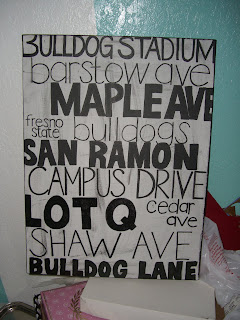 BULLDOG STADIUM
barstow ave
MAPLE AVE
fresno
state bulldogs
SAN RAMON
CAMPUS DRIVE
LOT Q cedar
ave
SHAW AVE
BULLDOG LANE